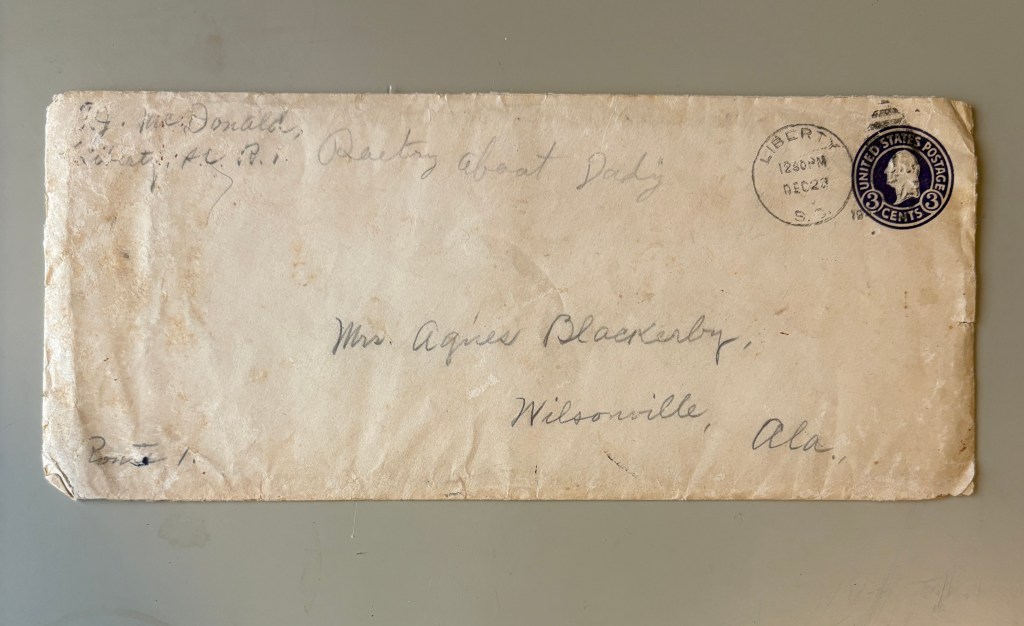 J. McDonald,
R. 1.
Poetry about Dady
LIBERTY
1230PM
DEC 23
S.C.
19
UNITED STATES POSTAGE
3 CENTS 3
Mrs. Agnes Blackerby,
Wilsonville,
Ala.,
Route 1.